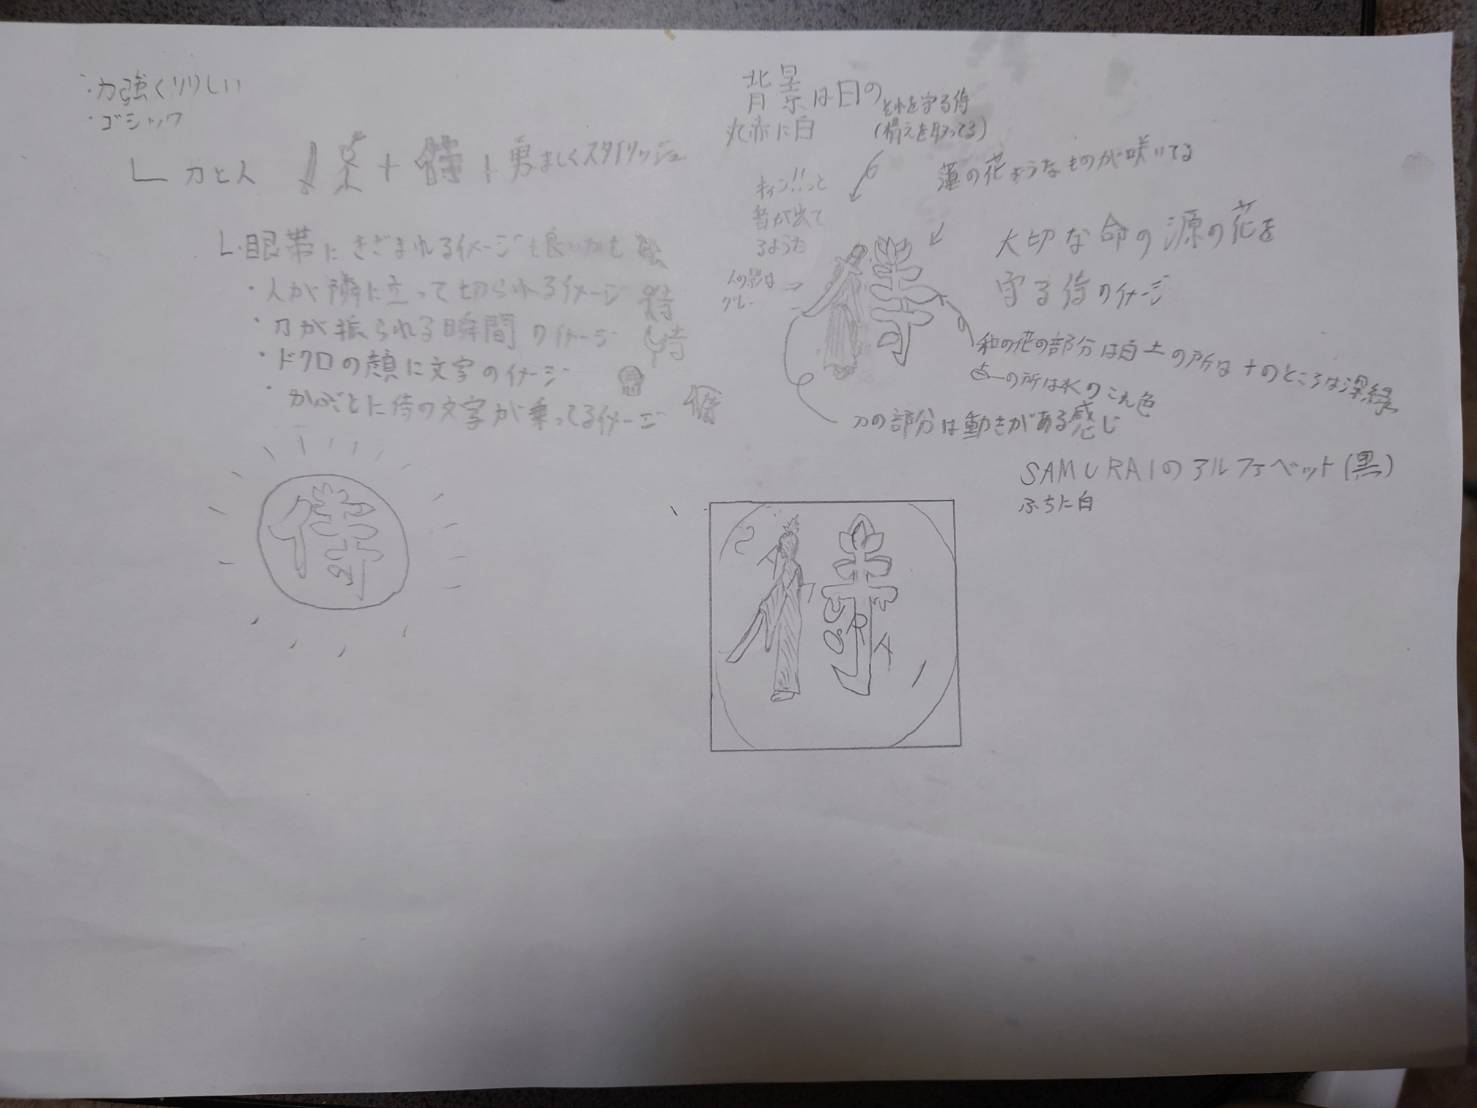 ・力強くりりしい
・ゴシック
刀と人 + 侍 + 勇ましくスタイリッシュ
・眼帯にきざまれるイメージも良いかも
・人が隣に立って切られるイメージ 侍
・刀が振られる瞬間のイメージ 侍
・ドクロの顔に文字のイメージ
・かぶとに侍の文字が乗ってるイメージ
侍
背景は日の
丸赤に白
それを守る侍
(構えを取ってる)
蓮の花ようなものが咲いてる
キィン!!と
音が出て
るような
人の影は
グレー
侍
大切な命の源の花を
守る侍のイメージ
和の花の部分は白土の所は十のところは深緑
の所は水のこん色
刀の部分は動きがある感じ
SAMURAIのアルファベット(黒)
ふちに白
侍
R
A